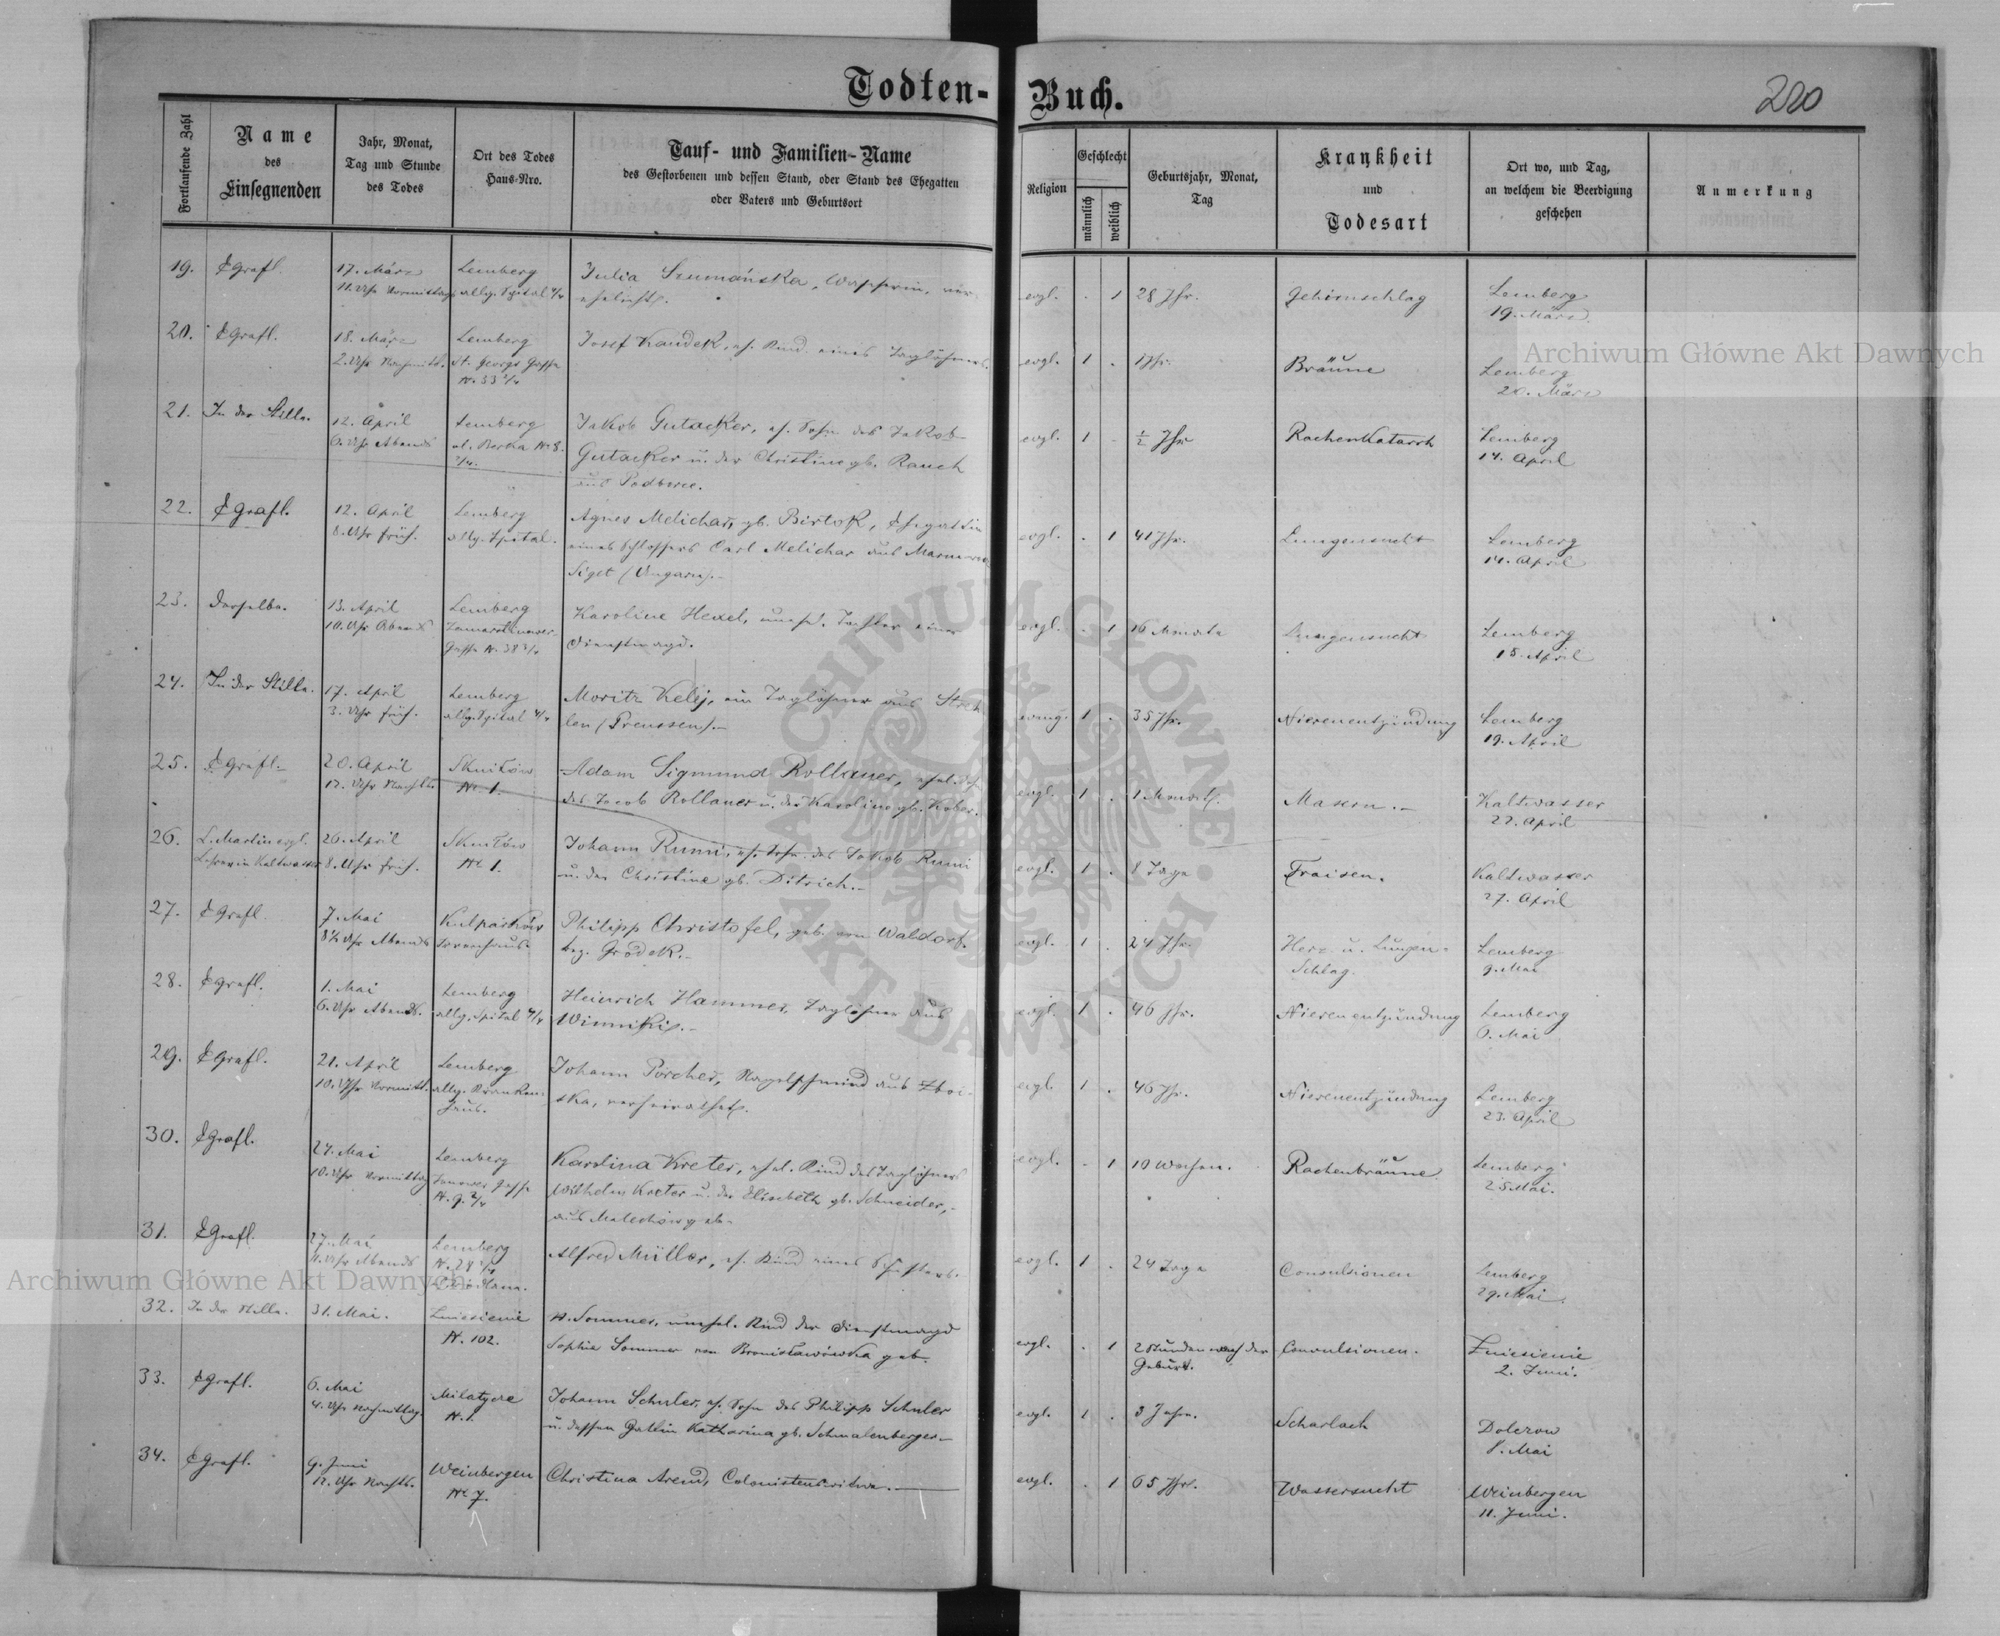 Todten-Buch.
220
Fortlaufende Zahl
Name
des
Einsegnenden
Jahr, Monat,
Tag und Stunde
des Todes
Ort des Todes
Haus-Nro.
Tauf- und Familien-Name
des Gestorbenen und dessen Stand, oder Stand des Ehegatten
oder Vaters und Geburtsort
Religion
Geschlecht
männlich
weiblich
Geburtsjahr, Monat,
Tag
Krankheit
und
Todesart
Ort wo, und Tag,
an welchem die Beerdigung
geschehen
Anmerkung
19. EGrafl. 17. März Lemberg Julia Szumańska, Wäscherin, ver-
11. Uhr Vormittags allg. Spital 4/4 ehelicht. evgl. . 1 28 Jhr. Gehirnschlag Lemberg
19. März
20. EGrafl. 18. März Lemberg Josef Kaudek, eh. Kind eines Taglöhners.
2. Uhr Nachmitt. St. Georgs Gasse evgl. 1 . 1 Jhr. Bräune Lemberg
N. 33 20. März
21. In der Stille. 12. April Lemberg Jakob Gutacker, eh. Sohn des Jakob
6. Uhr Abends ul. N. 8. Gutacker u. der Christine gb. Rauch evgl. 1 - ½ Jhr Rachenkatarrh Lemberg
2/4. aus Podberce. 14. April
22. EGrafl. 12. April Lemberg Agnes Melichar, gb. Birtok, Ehegattin
8. Uhr früh. allg. Spital. eines Schlossers Carl Melichar aus evgl. . 1 41 Jhr. Lungensucht Lemberg
Siget (Ungarn).- 14. April
23. Derselbe. 13. April Lemberg Karoline Hexel, unehl. Tochter einer
10. Uhr Abends Dienstmagd. evgl. . 1 16 Monate Lungensucht Lemberg
Gasse N. 38 15. April
24. In der Stille. 17. April Lemberg Moritz Kelej, ein Taglöhner aus Streh
3. Uhr früh. allg. Spital 4/4 len (Preussen).- evang. 1 . 35 Jhr. Nierenentzündung Lemberg
19. April
25. EGrafl. 20. April Skniłów Adam Sigmund Rollauer, ehel. S.
12. Uhr Nachts Nr. 1. des Jacob Rollauer u. der Karoline gb. Kober. evgl. 1 . 1 Monat. Masern.- Kaltwasser
22. April
26. L. Martin evgl. 26. April Skniłów Johann Rumi, eh. Sohn des Jakob Rumi
Lehrer in Kaltwasser 8. Uhr früh. Nr. 1. u. der Christine gb. Ditrich.- evgl. 1 . 8 Tage Fraisen. Kaltwasser
27. April
27. EGrafl. 7. Mai Kulparków Philipp Christofel, geb. von Waldorf
8½ Uhr Abends Irrenhaus. bzg. Gródek.- evgl. 1 . 24 Jhr. Herz- u. Lungen-
Schlag. Lemberg
9. Mai
28. EGrafl. 1. Mai Lemberg Heinrich Hammer, Taglöhner aus
6. Uhr Abends. allg. Spital 4/4 Winniki.- evgl. 1 . 46 Jhr. Nierenentzündung Lemberg
6. Mai
29. EGrafl. 21. April Lemberg Johann Porcher, Nagelschmied aus Zboi-
10. Uhr Vormitt. allg. Kranken- ska, verheirathet. evgl. 1 . 46 Jhr. Nierenentzündung Lemberg
haus. 23. April
30. EGrafl. 24. Mai Lemberg Karolina Kreter, ehel. Kind des Taglöhners
10. Uhr Vormittag Janower Gasse Wilhelm Kreter u. der Elisabeth gb. Schneider,- evgl. - 1 10 Wochen. Rachenbräune Lemberg
N. 9. 2/4 aus Malechów 25 Mai.
31. EGrafl. 27. Mai Lemberg Alfred Müller, eh. Kind eines Schusters.
11. Uhr Abends N. 28 evgl. 1 . 24 Tage Convulsionen Lemberg
29. Mai
32. In der Stille. 31. Mai. Zniesienie N. Sommer, unehel. Kind der Dienstmagd
N. 102. Sophie Sommer von Bronisławówka geb. evgl. . 1 2 Stunden nach der Convulsionen. Zniesienie
Geburt. 2. Juni.
33. EGrafl. 6. Mai Milatycze Johann Schuler, eh. Sohn des Philipp Schuler
4. Uhr Nachmittag. N. 1. u. dessen Gattin Katharina gb. Schmalenberger.- evgl. 1 . 3 Jahre. Scharlach Dolczow
8. Mai
34. EGrafl. 9. Juni Weinbergen Christina Arend, Colonistenswitwe.
12. Uhr Nachts. Nr 7. evgl. . 1 65 Jhr. Wassersucht Weinbergen
11. Juni.
Archiwum Główne Akt Dawnych
Archiwum Główne Akt Dawnych
ARCHIWUM GŁÓWNE AKT DAWNYCH